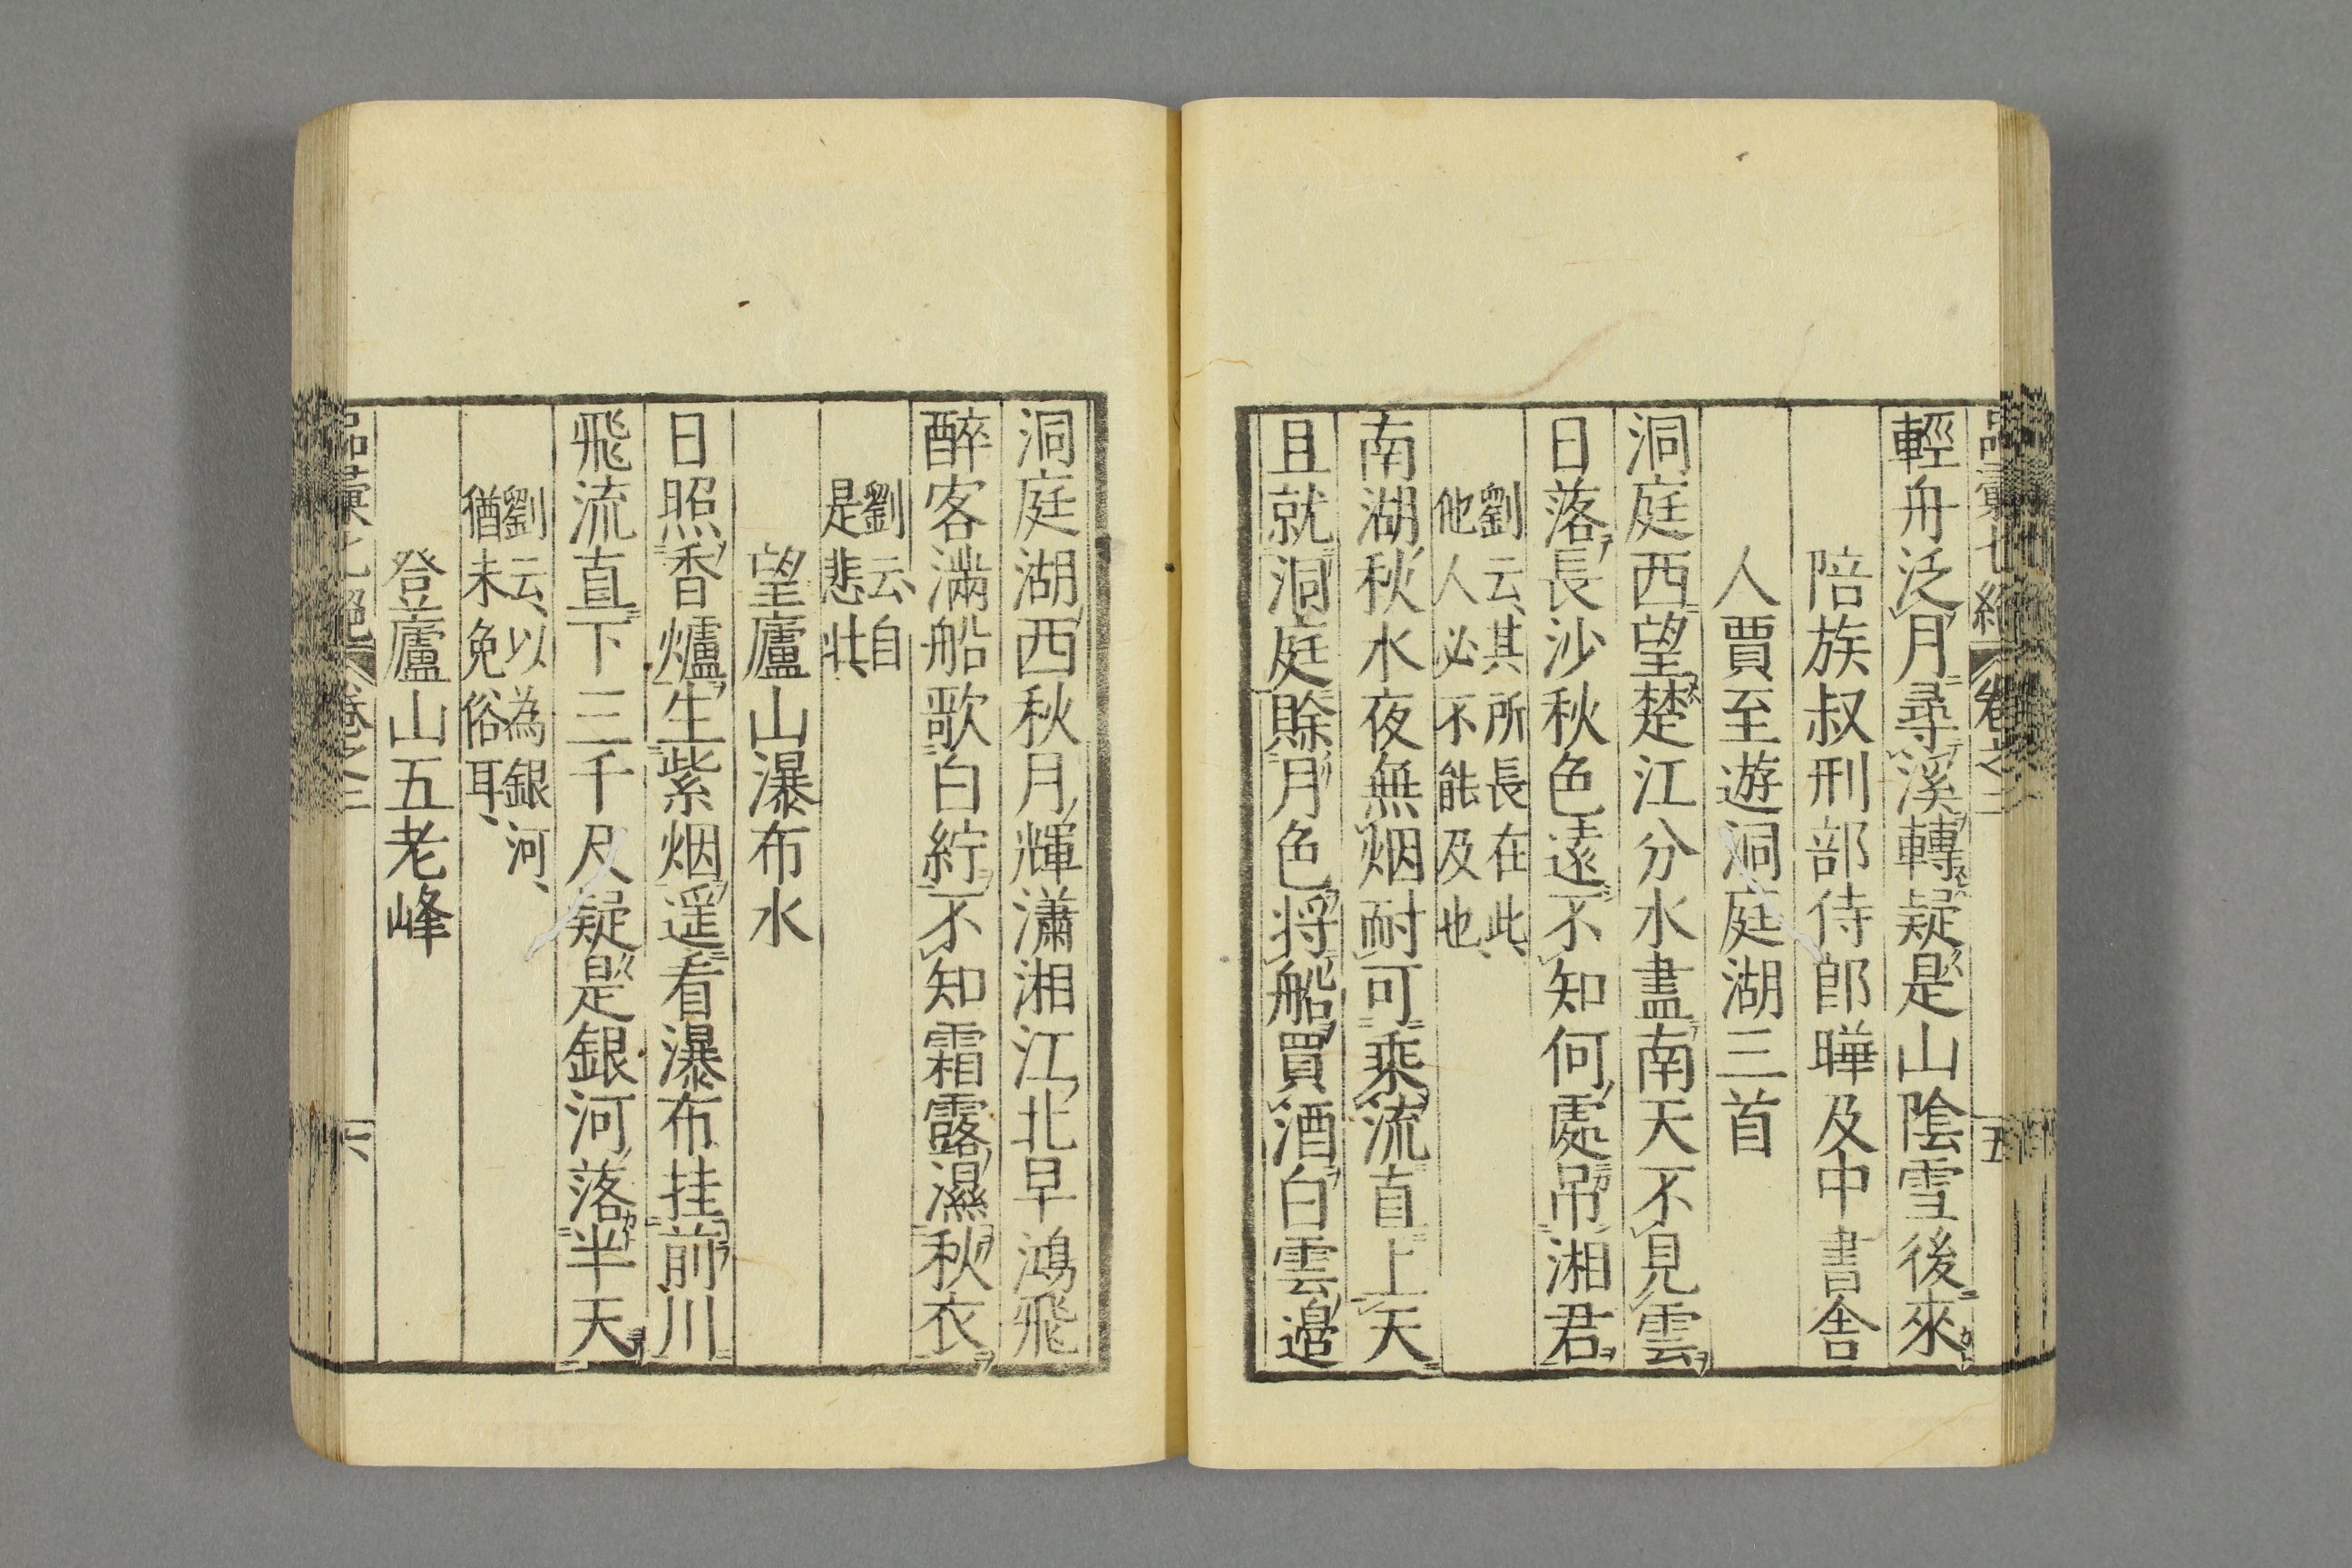 輕舟泛月尋溪轉疑是山陰雪後來
陪族叔刑部侍郎曄及中書舎
人賈至遊洞庭湖三首
洞庭西望楚江分水盡南天不見雲
日落長沙秋色遠不知何處吊湘君
劉云其所長在此
他人必不能及也
南湖秋水夜無烟耐可乘流直上天
且就洞庭賖月色将船買酒白雲邉
五
洞庭湖西秋月輝瀟湘江北早鴻飛
醉客滿船歌白紵不知霜露濕秋衣
劉云自
是悲壯
望廬山瀑布水
日照香爐生紫烟遥看瀑布挂前川
飛流直下三千尺疑是銀河落半天
劉云以為銀河
猶未免俗耳
登廬山五老峰
六